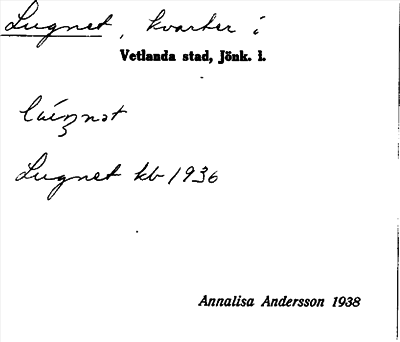 Lugnet, kvarter i
Vetlanda stad, Jönk. l.
Lugnet kb 1936
Annalisa Andersson 1938